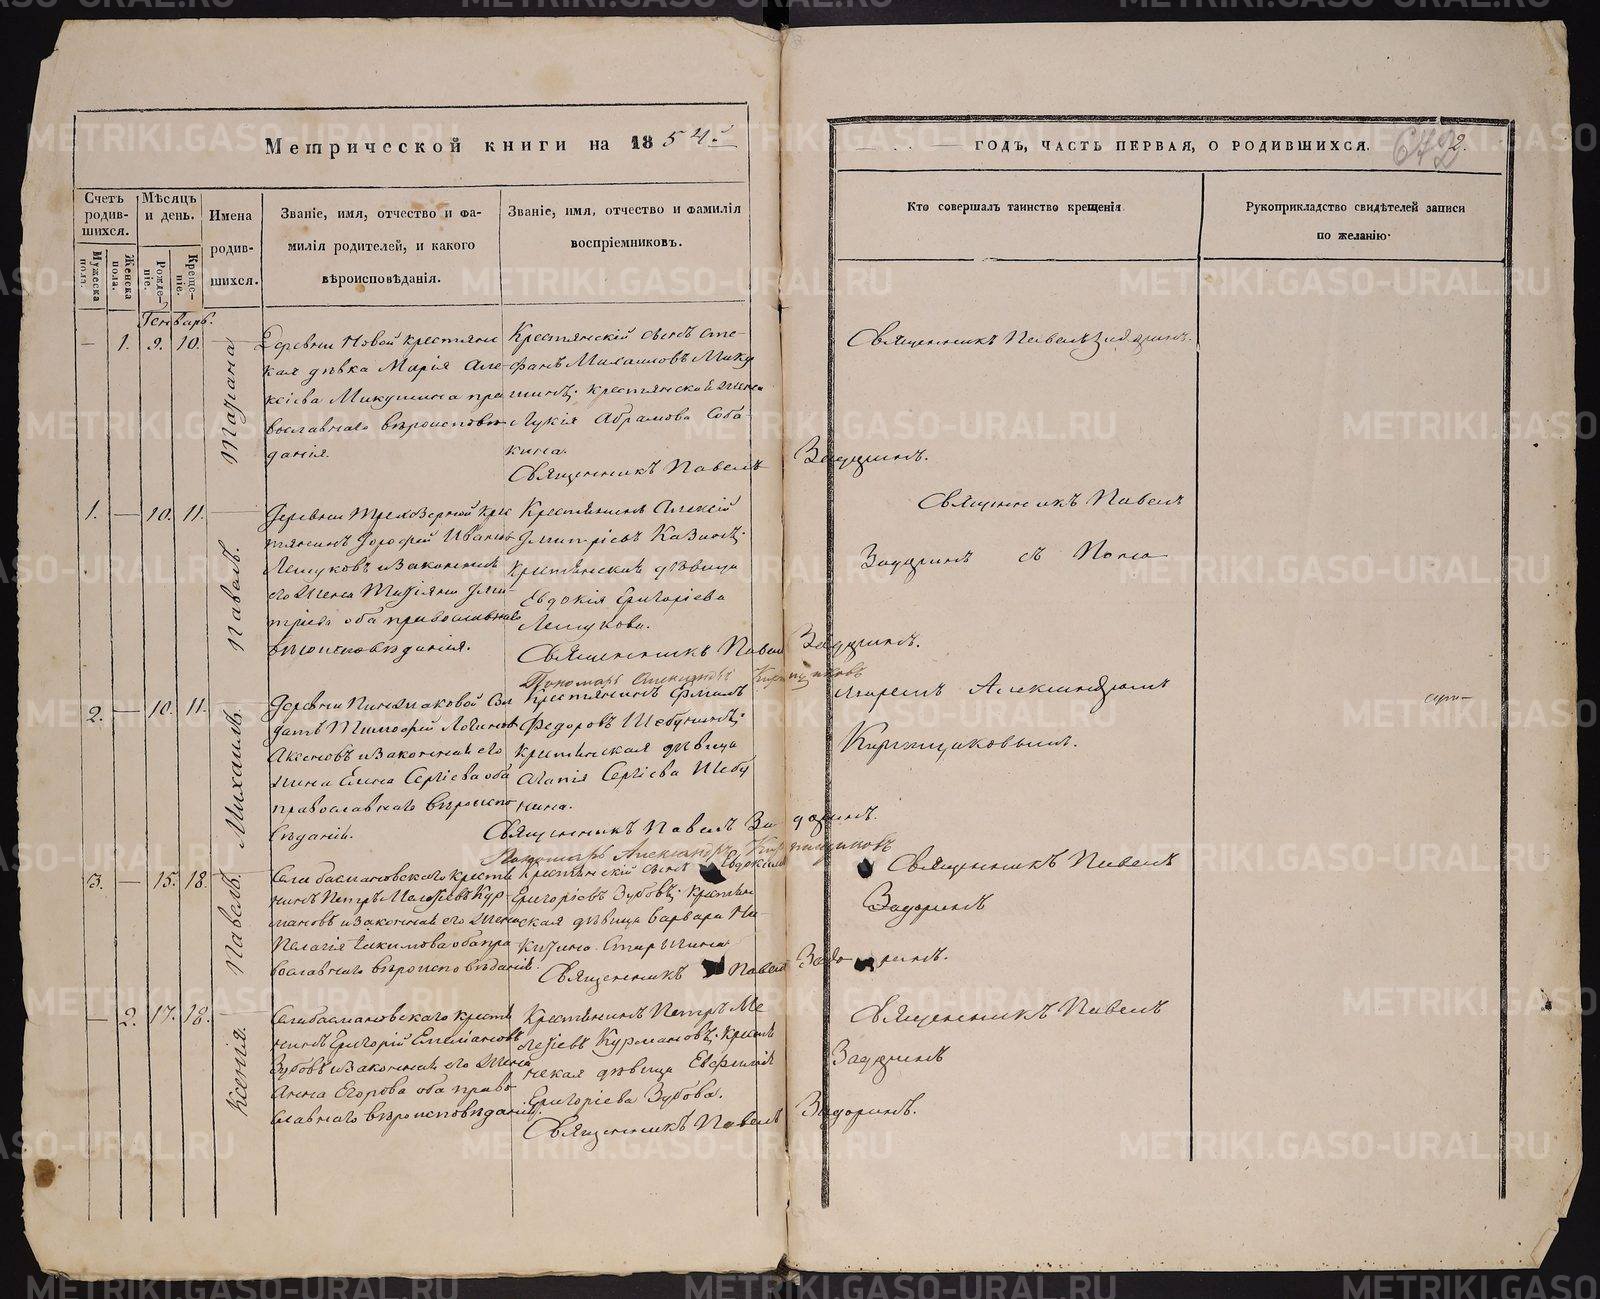 Метрической книги на 1854й
Счетъ родившихся.
Мѣсяцъ и день.
Имена родившихся.
Званіе, имя, отчество и фамилія родителей, и какого вѣроисповѣданія.
Званіе, имя, отчество и фамилія воспріемниковъ.
Мужеска пола.
Женска пола.
Рожденіе.
Крещеніе.
Генварь.
— 1. 9. 10.
Татіана
Деревни Новой крестьянс
кая дѣвка Марія Але-
ксіева Микушина пра
вославнаго вѣроисповѣ
данія.
Крестьянскій сынъ Сте-
фанъ Михаиловъ Мику
шинъ; крестьянская жена
Лукія Абрамова Соба-
кина.
Священникъ Павелъ Задоринъ.
1. — 10. 11.
Павелъ.
Деревни Трехозерной крес
тьянинъ Дорофей Ивановъ
Лешуковъ и законная
его жена Татіяна Дми-
тріева оба православнаго
вѣроисповѣданія.
Крестьянинъ Алексій
Дмитріевъ Казинъ;
крестьянская дѣвица
Евдокія Григоріева
Лешукова.
Священникъ Павелъ Задоринъ.
Пономарь Александръ Кирпищиковъ
2. — 10. 11.
Михаилъ.
датъ Тимофей Логиновъ
Аксеновъ и законная его
жена Елена Сергіева оба
православнаго вѣроиспо
вѣданія.
Крестьянинъ
Федоровъ Шебунинъ;
крестьянская дѣвица
Агапія Сергіева Шебу
нина.
Священникъ Павелъ Задоринъ.
Пономарь Александръ Кирпищиковъ
3. — 15. 18.
Павелъ.
Села Басмановскаго крестья
нинъ Петръ Мелетіевъ Кур-
мановъ и законная его жена
Пелагія Екимова оба пра-
вославнаго вѣроисповѣданія.
Крестьянскій сынъ Евдокимъ
Григоріевъ Зубовъ; крестьян
ская дѣвица Варвара Ни-
китина
Священникъ Павелъ Задоринъ.
— 2. 17. 18.
Ксенія.
Села Басмановскаго крестья
нинъ Григорій Емеліановъ
Зубовъ и законная его жена
Анна Егорова оба право
славнаго вѣроисповѣданія.
Крестьянинъ Петръ Ме
летіевъ Курмановъ; крестья
нская дѣвица Евфимія
Григоріева Зубова.
Священникъ Павелъ Задоринъ.
годъ, часть первая, о родившихся.
2.
Кто совершалъ таинство крещенія
Рукоприкладство свидѣтелей записи по желанію.
Священникъ Павелъ Задоринъ.
Священникъ Павелъ
Задоринъ съ Поно
маремъ Александромъ
Кирпищиковымъ.
Священникъ Павелъ
Задоринъ
Священникъ Павелъ
Задоринъ
METRIKI.GASO-URAL.RU